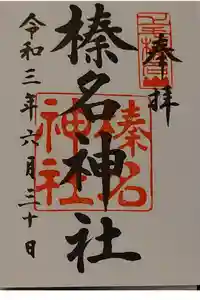 奉拝
榛名神社
榛名
神社
令和三年六月二十日